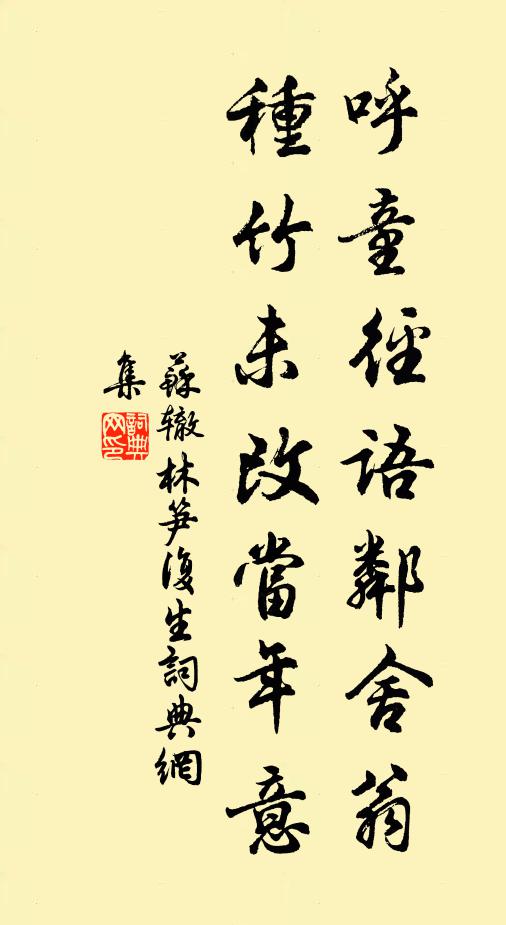 呼童徑語鄰舍翁
種竹未改當年意
蘇轍林笋復生詞典網
集
詞典網印